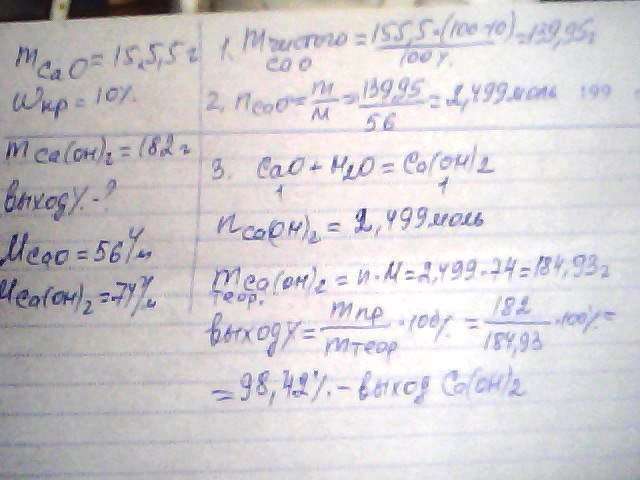 mCaO = 155,5 г
Wпр = 10%
mCa(OH)2 = 182 г
выход% - ?
MCaO = 56 г/м
MCa(OH)2 = 74 г/м
1. mчистого CaO = 155,5·(100-10)/100% = 139,95 г
2. nCaO = m/M = 139,95/56 = 2,499 моль
3. CaO + H2O = Ca(OH)2
1 1
nCa(OH)2 = 2,499 моль
mCa(OH)2 теор. = n·M = 2,499·74 = 184,93 г
выход% = mпр/mтеор · 100% = 182/184,93 · 100% =
= 98,42% - выход Ca(OH)2